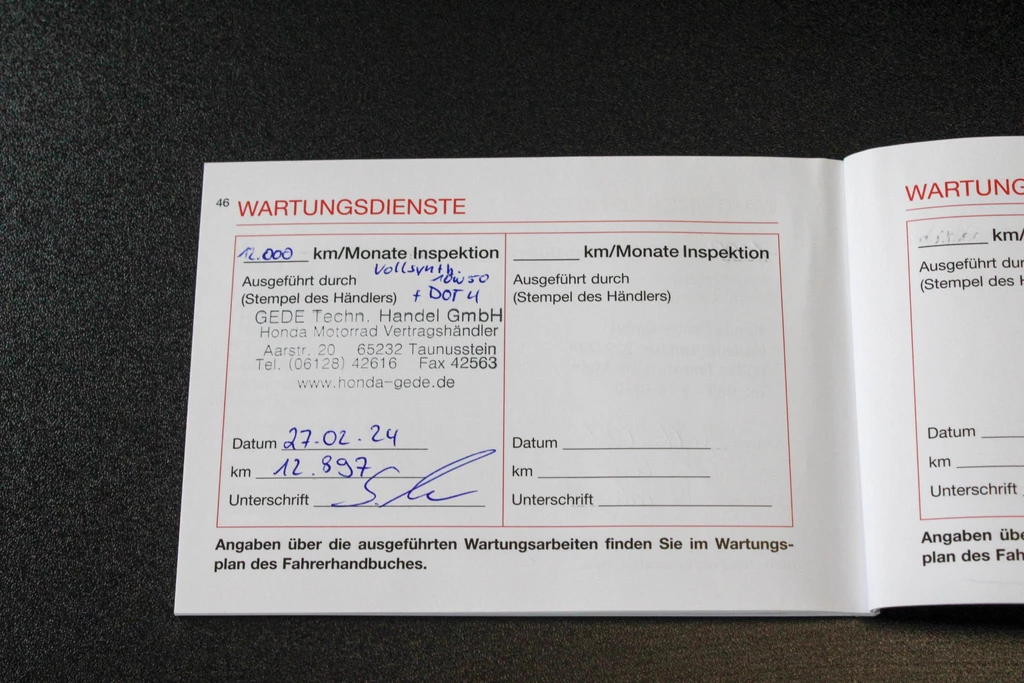 46 WARTUNGSDIENSTE
12.000 km/Monate Inspektion
Vollsynth. 10W50
Ausgeführt durch
(Stempel des Händlers) + DOT 4
GEDE Techn. Handel GmbH
Honda Motorrad Vertragshändler
Aarstr. 20 65232 Taunusstein
Tel. (06128) 42616 Fax 42563
www.honda-gede.de
Datum 27.02.24
km 12.897
Unterschrift
km/Monate Inspektion
Ausgeführt durch
(Stempel des Händlers)
Datum
km
Unterschrift
Angaben über die ausgeführten Wartungsarbeiten finden Sie im Wartungs-
plan des Fahrerhandbuches.
WARTUNG
km/
Ausgeführt dur
(Stempel des H
Datum
km
Unterschrift
Angaben übe
plan des Fah